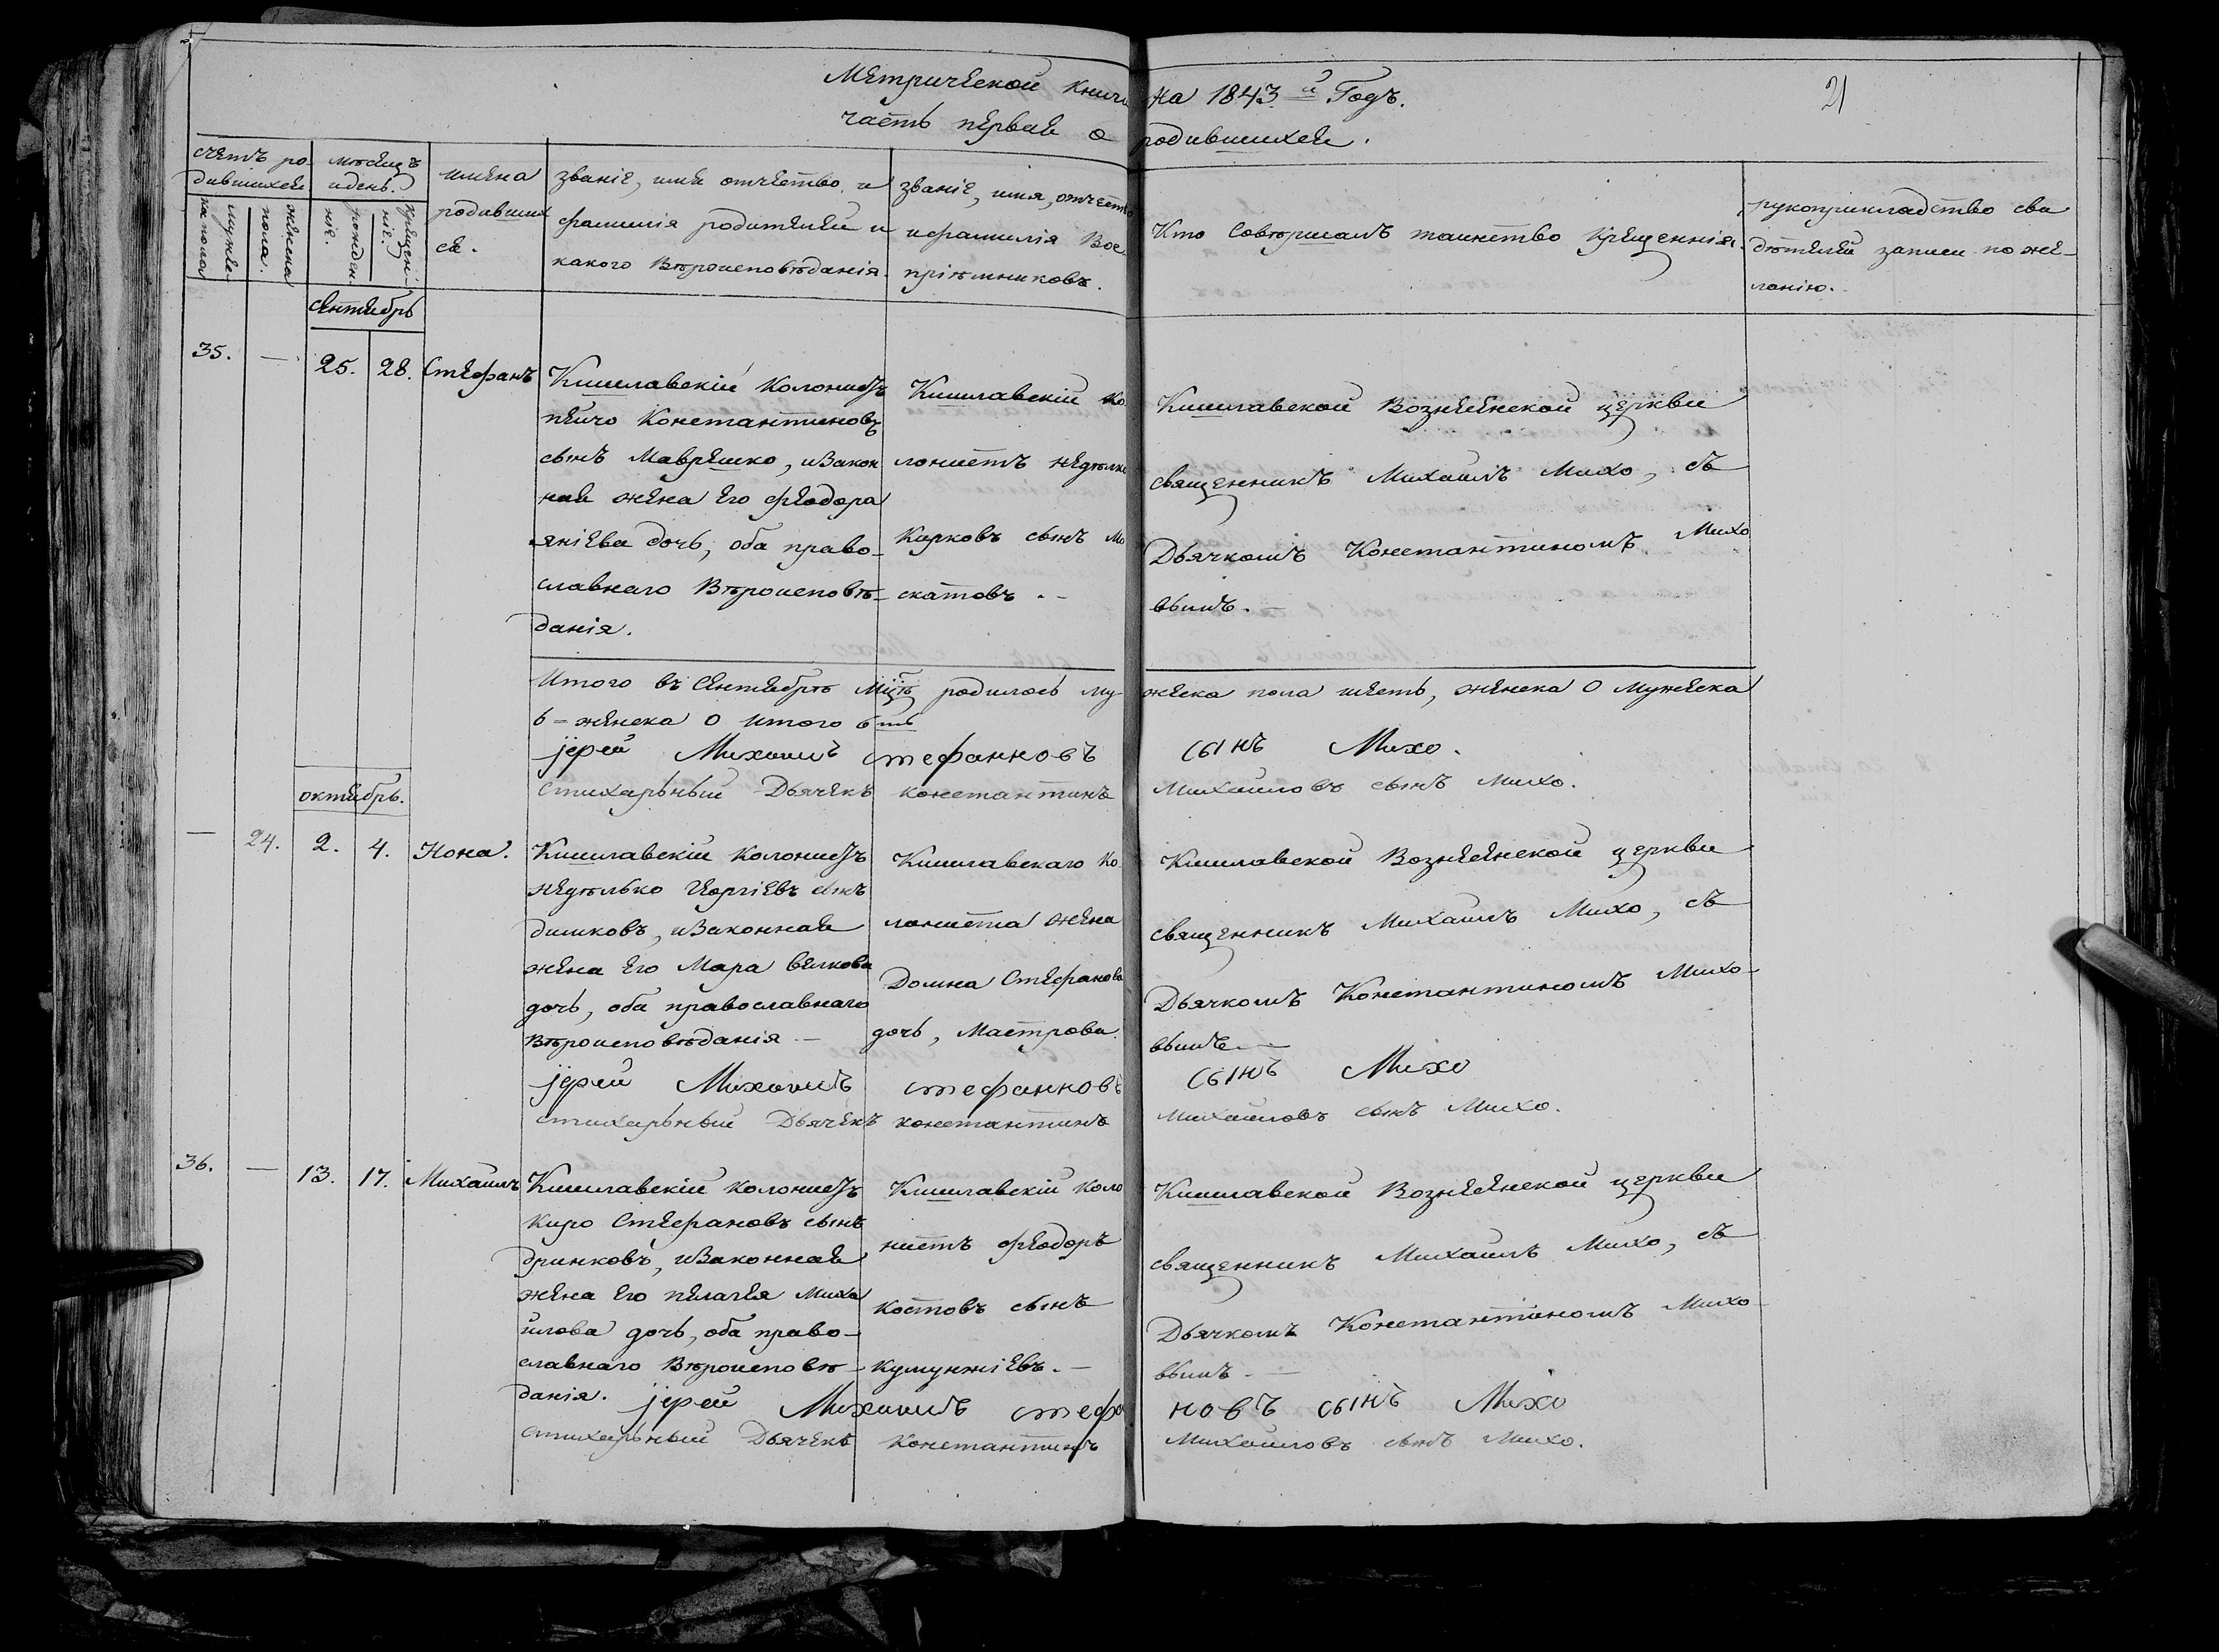 Метрической книги на 1843й Годъ. 21
часть первая о родившихся.
счетъ родившихся
мѣсяцъ и день.
имена родившихся.
званіе, имя отчество, и фамилія родителей и какого Вѣроисповѣданія.
званіе, имя, отчество и фамилія Воспріѣмниковъ.
Кто Совѣршалъ таинство крещеннія.
рукоприкладство свидѣтѣлей записи по желанію.
мужеска пола
женска пола.
рожденіе.
крещеніе.
Сентябрь
35. — 25. 28. Стефанъ
Кишлавскій Колонистъ
пейчо Константиновъ
сынъ Маврешко, и Закон
ная жена Его Феодора
яніева дочь, оба право-
славнаго Вѣроисповѣ-
данія.
Кишлавскій ко
лонистъ Недѣлко
Карковъ сынъ Мо
скатовъ.
Кишлавской Вознесенской церкви
священникъ Михаилъ Михо, съ
Дьячкомъ Константиномъ Михо
вымъ.
Итого въ Сентябрѣ Мцѣ родилось му жеска пола шесть, женска 0 Мужеска
6 = женска 0 итого 6ть
јерей Михаилъ стефановъ сынъ Михо.
Стихарьный Дьячекъ константинъ Михайловъ сынъ Михо.
октябрь.
— 24. 2. 4. Нона.
Кишлавскій Колонистъ
Недѣлько Георгіевъ сынъ
димковъ, и Законная
жена Его Мара Велкова
дочь, оба православнаго
Вѣроисповѣданія —
Кишлавскаго Ко
лониста жена
Домна Стефанова
дочь, Маетрова.
Кишлавской Вознесенской церкви
священникъ Михаилъ Михо, съ
Дьячкомъ Константиномъ Михо-
вымъ.
јерей Михаилъ стефановъ сынъ Михо
Стихарьный Дьячекъ константинъ Михайловъ сынъ Михо.
36. — 13. 17. Михаилъ
Кишлавскій колонистъ
Киро Стефановъ сынъ
дринковъ, и Законная
жена Его пелагея Миха
йлова дочь, оба право-
славнаго Вѣроисповѣ-
данія.
Кишлавскій Коло
нистъ Феодоръ
костовъ сынъ
кумунжіевъ. —
Кишлавской Вознесенской церкви
священникъ Михаилъ Михо, съ
Дьячкомъ Константиномъ Михо-
вымъ. —
јерей Михаилъ стефановъ сынъ Михо
Стихарьный Дьячекъ Константинъ Михайловъ сынъ Михо.